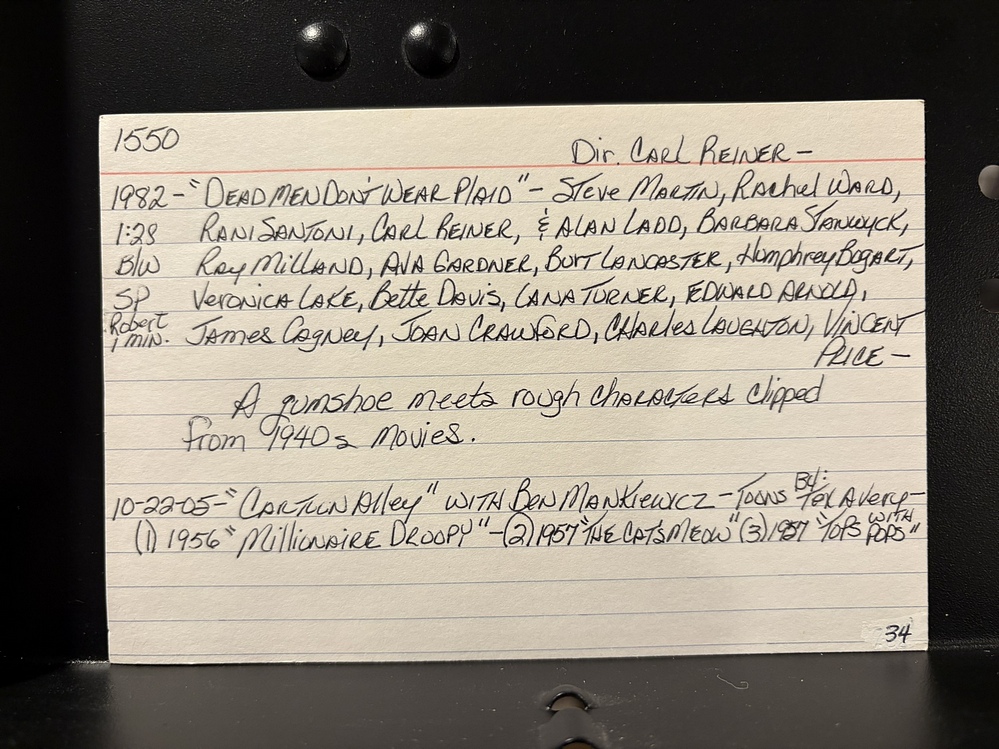 1550
Dir. CARL REINER –
1982 – "DEAD MEN DON'T WEAR PLAID" – STEVE MARTIN, RACHEL WARD,
1:28 RANI SANTONI, CARL REINER, & ALAN LADD, BARBARA STANWYCK,
B/W RAY MILLAND, AVA GARDNER, BURT LANCASTER, Humphrey Bogart,
SP VERONICA LAKE, Bette Davis, LANA TURNER, EDWARD ARNOLD,
Robert James Cagney, JOAN CRAWFORD, CHARLES LAUGHTON, VINCENT
1 MIN. PRICE –
A gumshoe meets rough characters clipped
from 1940s movies.
10-22-05 – "CARTOON Alley" WITH BEN MANKIEWCZ – TOONS BY: Tex Avery –
(1) 1956 "MILLIONAIRE DROOPY" – (2) 1957 "THE CAT'S MEOW" (3) 1957 "TOPS WITH POPS"
34